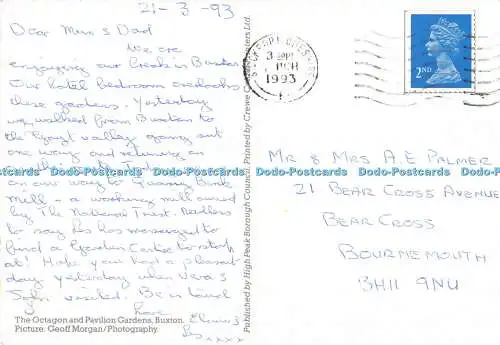 21-3-93
Dear Mum & Dad
We are
enjoying our break in Buxton.
Our hotel bedroom overlooks
these gardens. Yesterday
we walked from Buxton to
the Goyt valley going out
one way and returning on
another. Today
on our way to Quarry Bank
Mill - a working mill owned
by The National Trust. Needless
to say he has managed to
find a Garden Centre to stop
at! Hope you had a pleasant
day yesterday when Vera &
John visited. Be in touch
love
xxxx
The Octagon and Pavilion Gardens, Buxton.
Picture: Geoff Morgan/Photography.
Published by High Peak Borough Council. Printed by Crewe Colour Printers Ltd.
STOCKPORT CHESHIRE
MCH
1993
2ND
MR & MRS A E PALMER
21 BEAR CROSS AVENUE
BEAR CROSS
BOURNEMOUTH
BH11 9NU
Dodo-Postcards Dodo-Postcards Dodo-Postcards Dodo-Postcards
Dodo-Postcards Dodo-Postcards Dodo-Postcards Dodo-Postcards